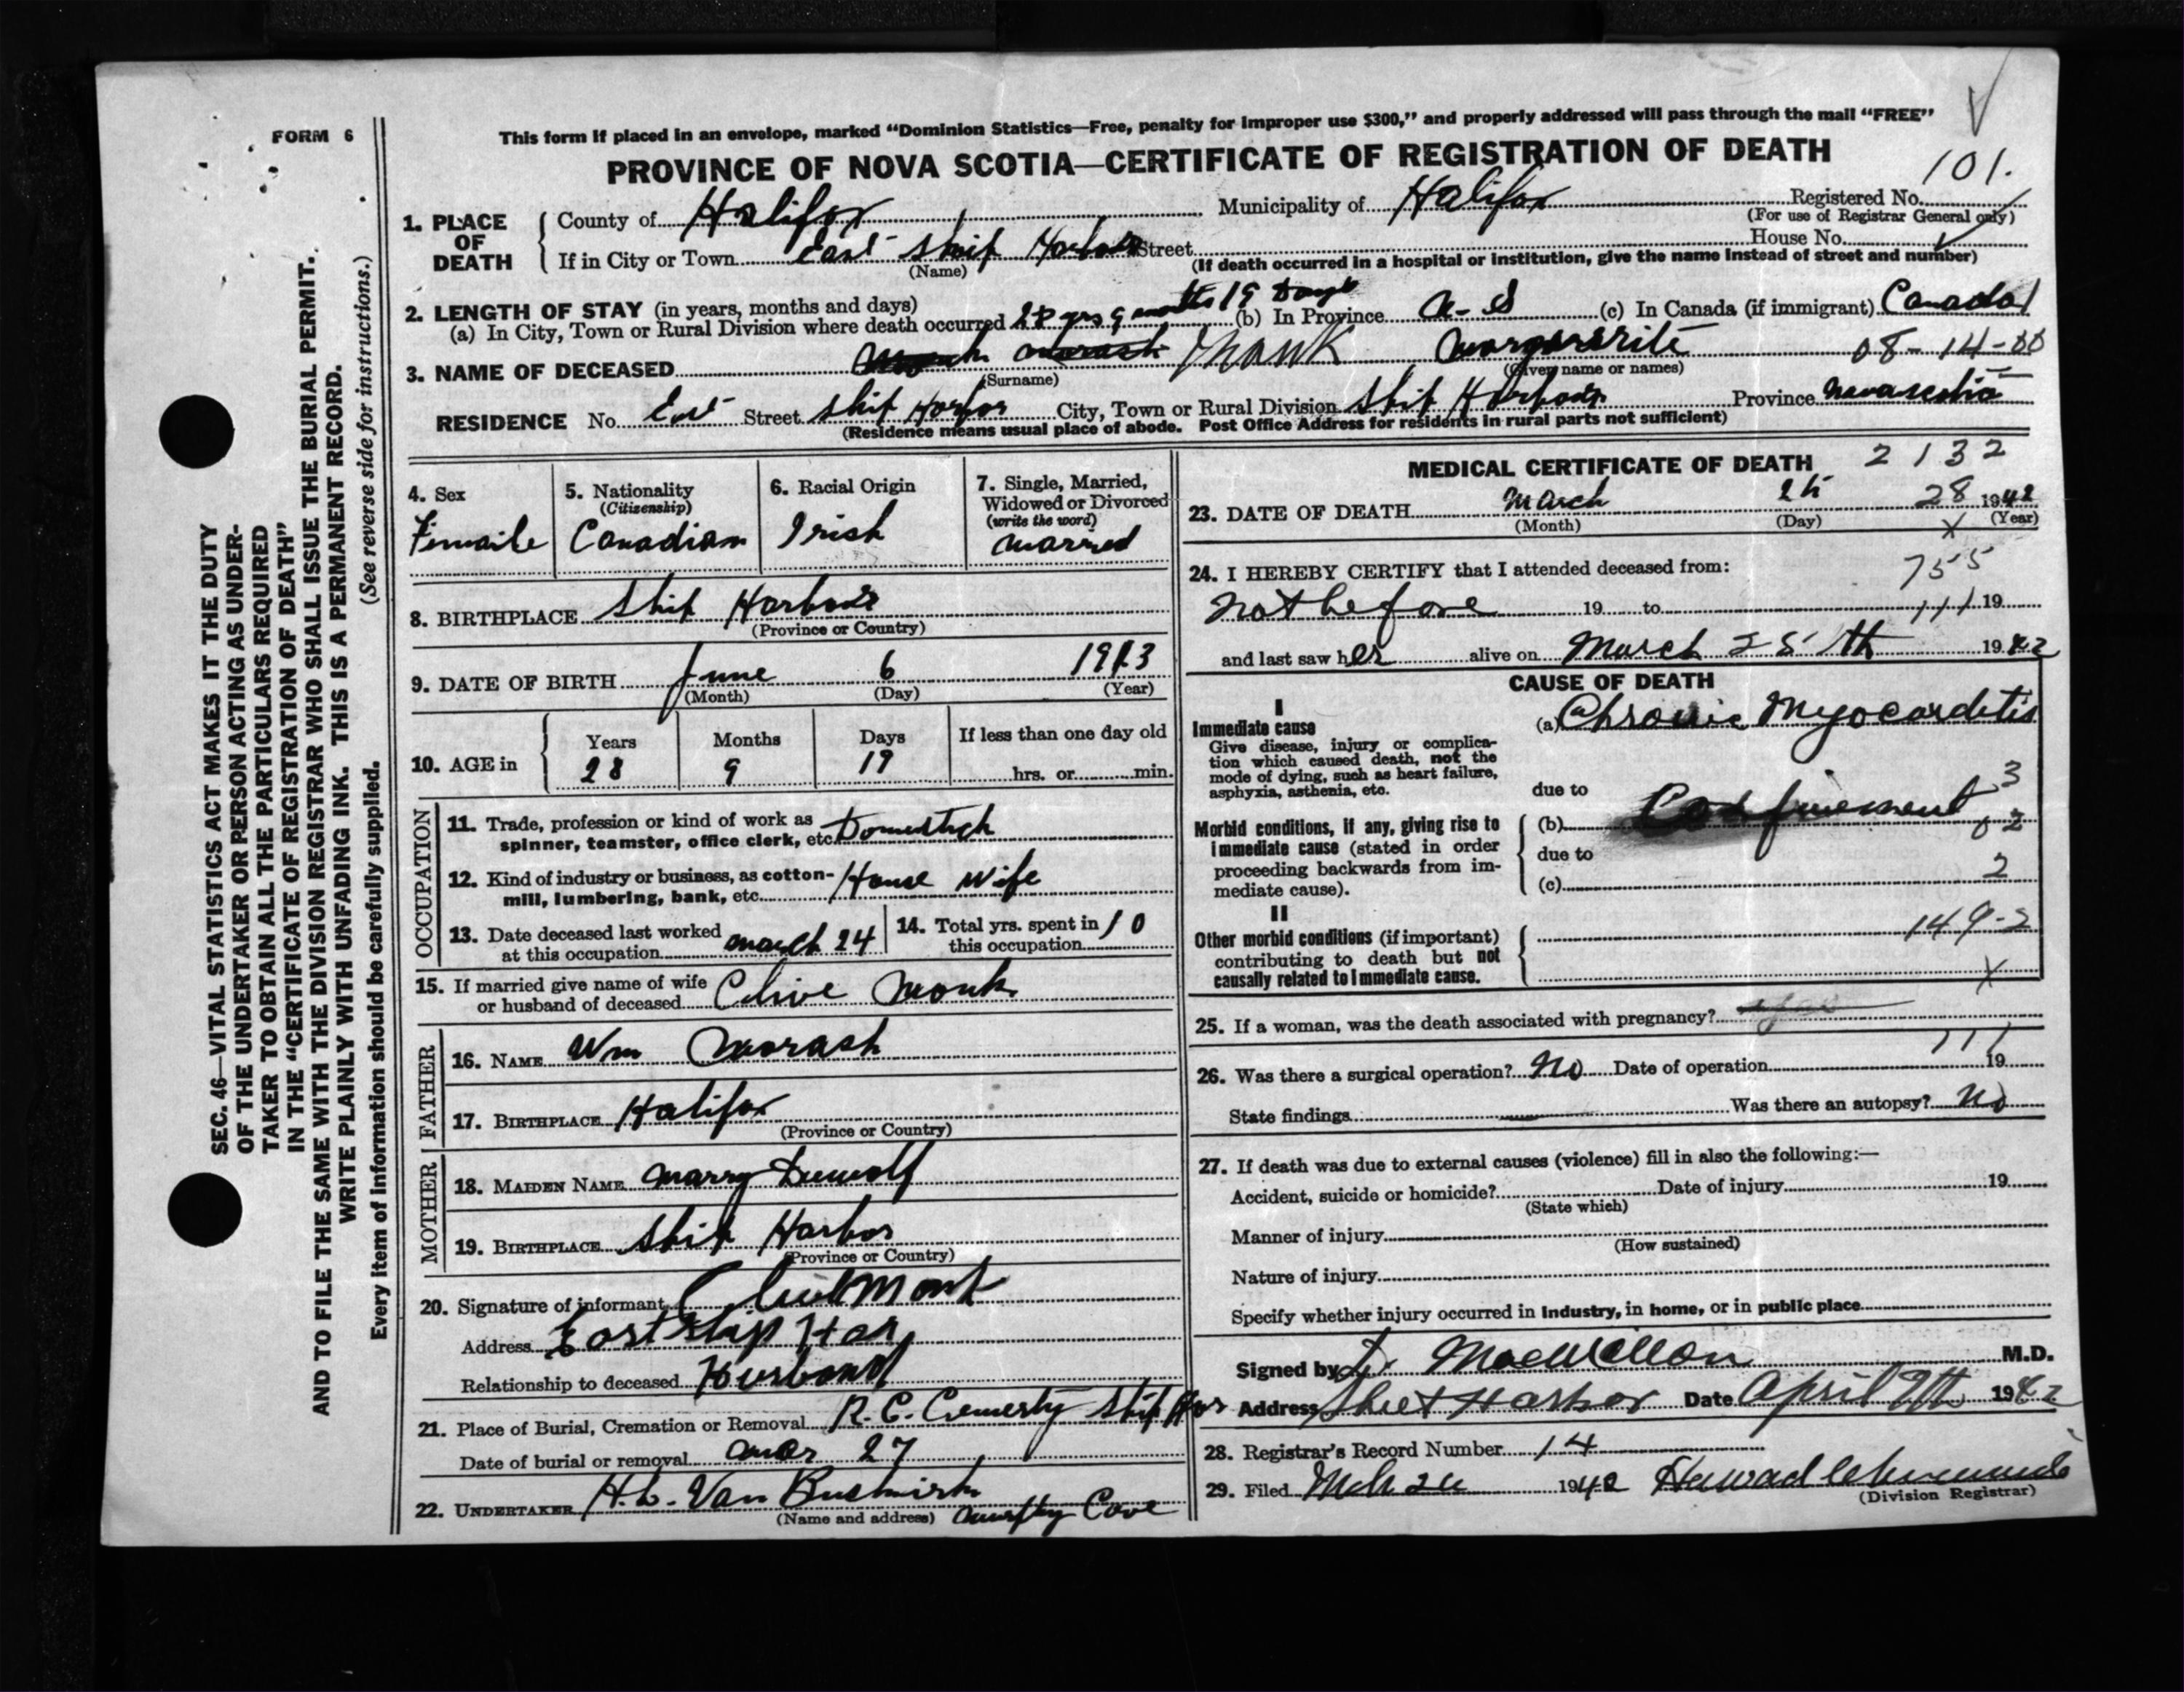 FORM 6
This form if placed in an envelope, marked "Dominion Statistics—Free, penalty for improper use $300," and properly addressed will pass through the mail "FREE"
PROVINCE OF NOVA SCOTIA—CERTIFICATE OF REGISTRATION OF DEATH
101.
1. PLACE OF DEATH
County of Halifax Municipality of Halifax Registered No.
(For use of Registrar General only)
If in City or Town East Ship Harbour Street House No.
(Name) (If death occurred in a hospital or institution, give the name instead of street and number)
2. LENGTH OF STAY (in years, months and days)
(a) In City, Town or Rural Division where death occurred 28 yrs 9 months 19 Days (b) In Province N-S (c) In Canada (if immigrant) Canada
3. NAME OF DECEASED Monk Margurrite 08-14-00
(Surname) (Given name or names)
RESIDENCE No. East Street Ship Harbor City, Town or Rural Division Ship Harbour Province Nova scotia
(Residence means usual place of abode. Post Office Address for residents in rural parts not sufficient)
4. Sex Fimaile
5. Nationality (Citizenship) Canadian
6. Racial Origin Irish
7. Single, Married, Widowed or Divorced (write the word) Married
8. BIRTHPLACE Ship Harbour
(Province or Country)
9. DATE OF BIRTH June 6 1913
(Month) (Day) (Year)
10. AGE in Years 28 Months 9 Days 19 If less than one day old hrs. or min.
OCCUPATION
11. Trade, profession or kind of work as spinner, teamster, office clerk, etc. Domestick
12. Kind of industry or business, as cotton-mill, lumbering, bank, etc. House Wife
13. Date deceased last worked at this occupation March 24
14. Total yrs. spent in this occupation 10
15. If married give name of wife or husband of deceased Clive Monk
FATHER
16. NAME Wm Morash
17. BIRTHPLACE Halifax
(Province or Country)
MOTHER
18. MAIDEN NAME Marry Dewolf
19. BIRTHPLACE Ship Harbor
(Province or Country)
20. Signature of informant Clive Monk
Address East Ship Har
Relationship to deceased Husband
21. Place of Burial, Cremation or Removal R. C. Cemerty Ship Har
Date of burial or removal Mar 27
22. UNDERTAKER H.L. Van Buskirk
(Name and address) Murphy Cove
MEDICAL CERTIFICATE OF DEATH 2132
23. DATE OF DEATH March 25 28 1942
(Month) (Day) (Year)
X
24. I HEREBY CERTIFY that I attended deceased from: 755
not before 19 to 111 19
and last saw her alive on March 25th 1942
CAUSE OF DEATH
I
Immediate cause
Give disease, injury or complication which caused death, not the mode of dying, such as heart failure, asphyxia, asthenia, etc.
(a) Chronic Myocarditis
due to 3
Morbid conditions, if any, giving rise to immediate cause (stated in order proceeding backwards from immediate cause).
(b) Confinement 02
due to
(c) 2
II
Other morbid conditions (if important) contributing to death but not causally related to immediate cause.
149-2
X
25. If a woman, was the death associated with pregnancy?
111
26. Was there a surgical operation? No Date of operation 19
State findings Was there an autopsy? No
27. If death was due to external causes (violence) fill in also the following:—
Accident, suicide or homicide? Date of injury 19
(State which)
Manner of injury
(How sustained)
Nature of injury
Specify whether injury occurred in industry, in home, or in public place
Signed by MacMillan M.D.
Address Sheet Harbor Date April 9th 1942
28. Registrar's Record Number 14
29. Filed 1942
(Division Registrar)
SEC. 46—VITAL STATISTICS ACT MAKES IT THE DUTY
OF THE UNDERTAKER OR PERSON ACTING AS UNDER-
TAKER TO OBTAIN ALL THE PARTICULARS REQUIRED
IN THE "CERTIFICATE OF REGISTRATION OF DEATH"
AND TO FILE THE SAME WITH THE DIVISION REGISTRAR WHO SHALL ISSUE THE BURIAL PERMIT.
WRITE PLAINLY WITH UNFADING INK. THIS IS A PERMANENT RECORD.
(See reverse side for instructions.)
Every item of information should be carefully supplied.